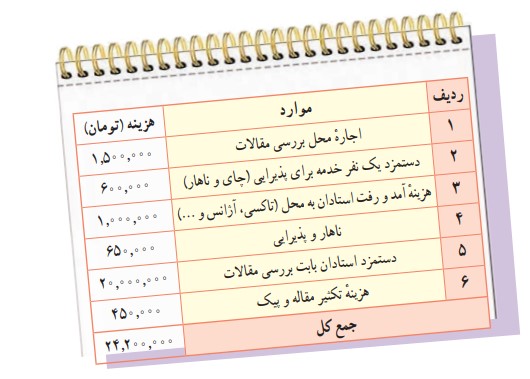 ردیف موارد هزینه (تومان)
۱ اجارهٔ محل بررسی مقالات ۱,۵۰۰,۰۰۰
۲ دستمزد یک نفر خدمه برای پذیرایی (چای و ناهار) ۶۰۰,۰۰۰
۳ هزینهٔ آمد و رفت استادان به محل (تاکسی، آژانس و ...) ۱,۰۰۰,۰۰۰
۴ ناهار و پذیرایی ۶۵۰,۰۰۰
۵ دستمزد استادان بابت بررسی مقالات ۲۰,۰۰۰,۰۰۰
۶ هزینهٔ تکثیر مقاله و پیک ۴۵۰,۰۰۰
جمع کل ۲۴,۲۰۰,۰۰۰